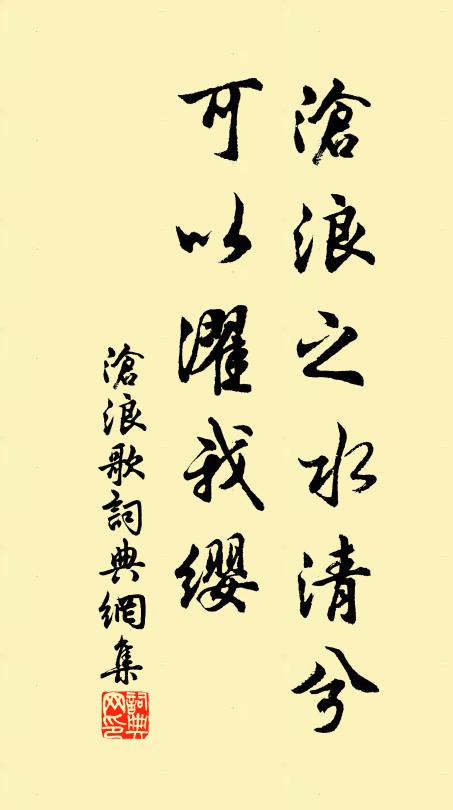 滄浪之水清兮
可以濯我缨
滄浪歌詞典網集
詞典网印